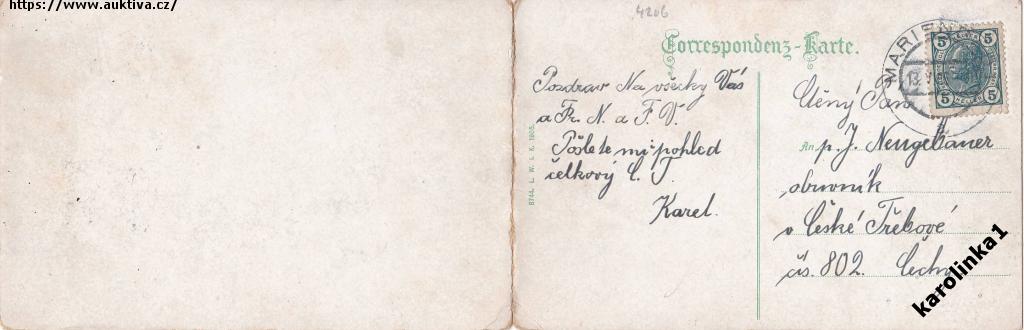 https://www.auktiva.cz/
4206
Correspondenz-Karte.
Pozdrav Na všecky Vás
a Fr. N. a F. V.
Pošlete mi pohled
celkový Č. T.
Karel.
8744. L. W. & K. 1905.
MARIEN
13
5 5
5 5
Ctěný Pan
An p. J. Neugebauer
obuvník
v České Třebové
čís. 802. Čechy
karolinka1